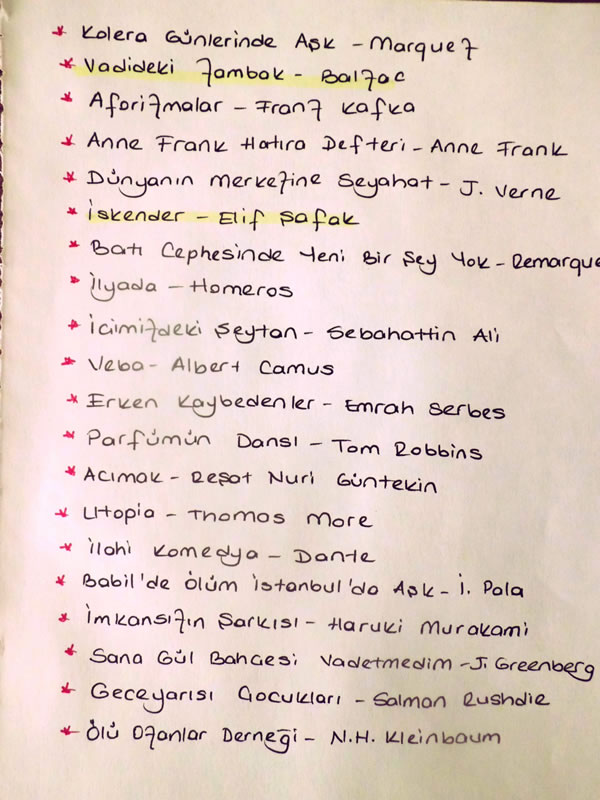 * Kolera Günlerinde Aşk - Marquez
* Vadideki Zambak - Balzac
* Aforizmalar - Franz Kafka
* Anne Frank Hatıra Defteri - Anne Frank
* Dünyanın Merkezine Seyahat - J. Verne
* İskender - Elif Şafak
* Batı Cephesinde Yeni Bir Şey Yok - Remarque
* İlyada - Homeros
* İçimizdeki Şeytan - Sebahattin Ali
* Veba - Albert Camus
* Erken Kaybedenler - Emrah Serbes
* Parfümün Dansı - Tom Robbins
* Acımak - Reşat Nuri Güntekin
* Utopia - Thomas More
* İlahi Komedya - Dante
* Babil'de Ölüm İstanbul'da Aşk - İ. Pala
* İmkansızın Şarkısı - Haruki Murakami
* Sana Gül Bahçesi Vadetmedim - J. Greenberg
* Geceyarısı Çocukları - Salman Rushdie
* Ölü Ozanlar Derneği - N.H. Kleinbaum